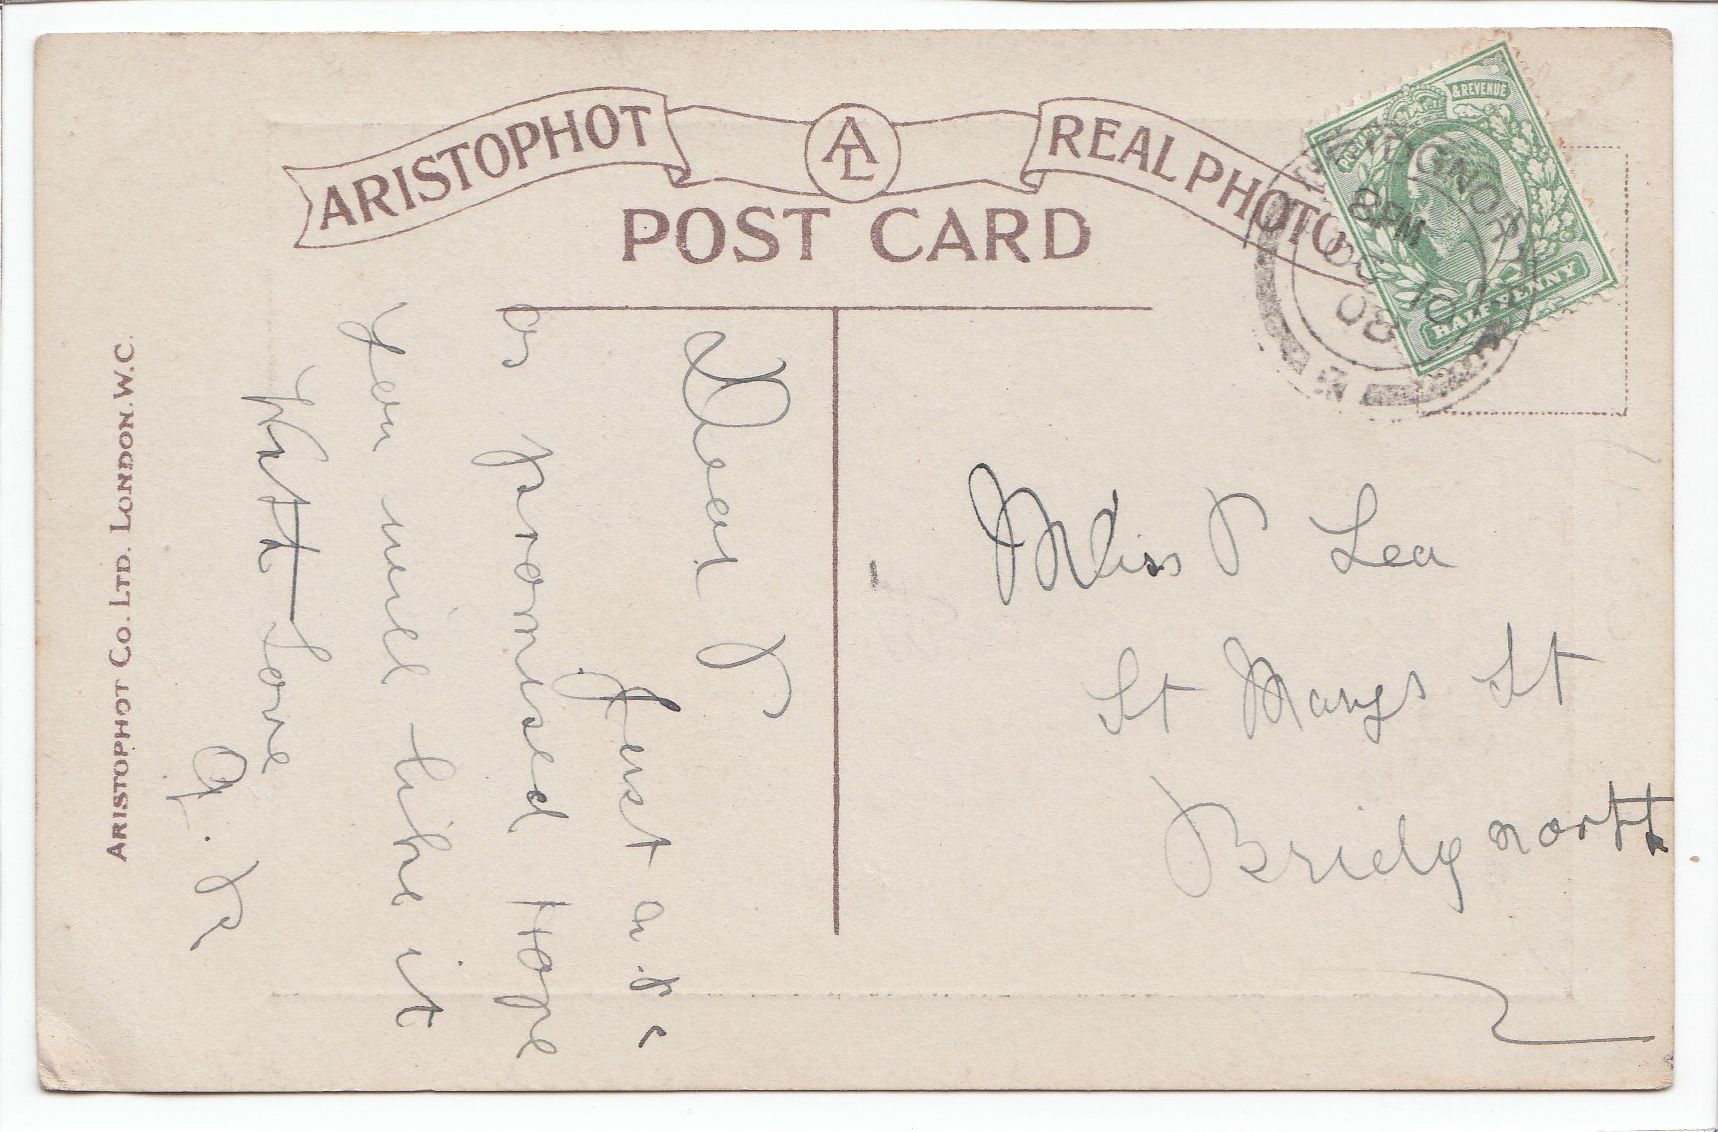 ARISTOPHOT
REAL PHOTO
AL
POST CARD
ARISTOPHOT CO. LTD. LONDON. W.C.
& REVENUE
HALFPENNY
BRIDGNORTH
8 PM
08
Dear P
Just a p.c
as promised Hope
you will like it
With Love
A. R
Miss P Lea
St Marys St
Bridgnorth